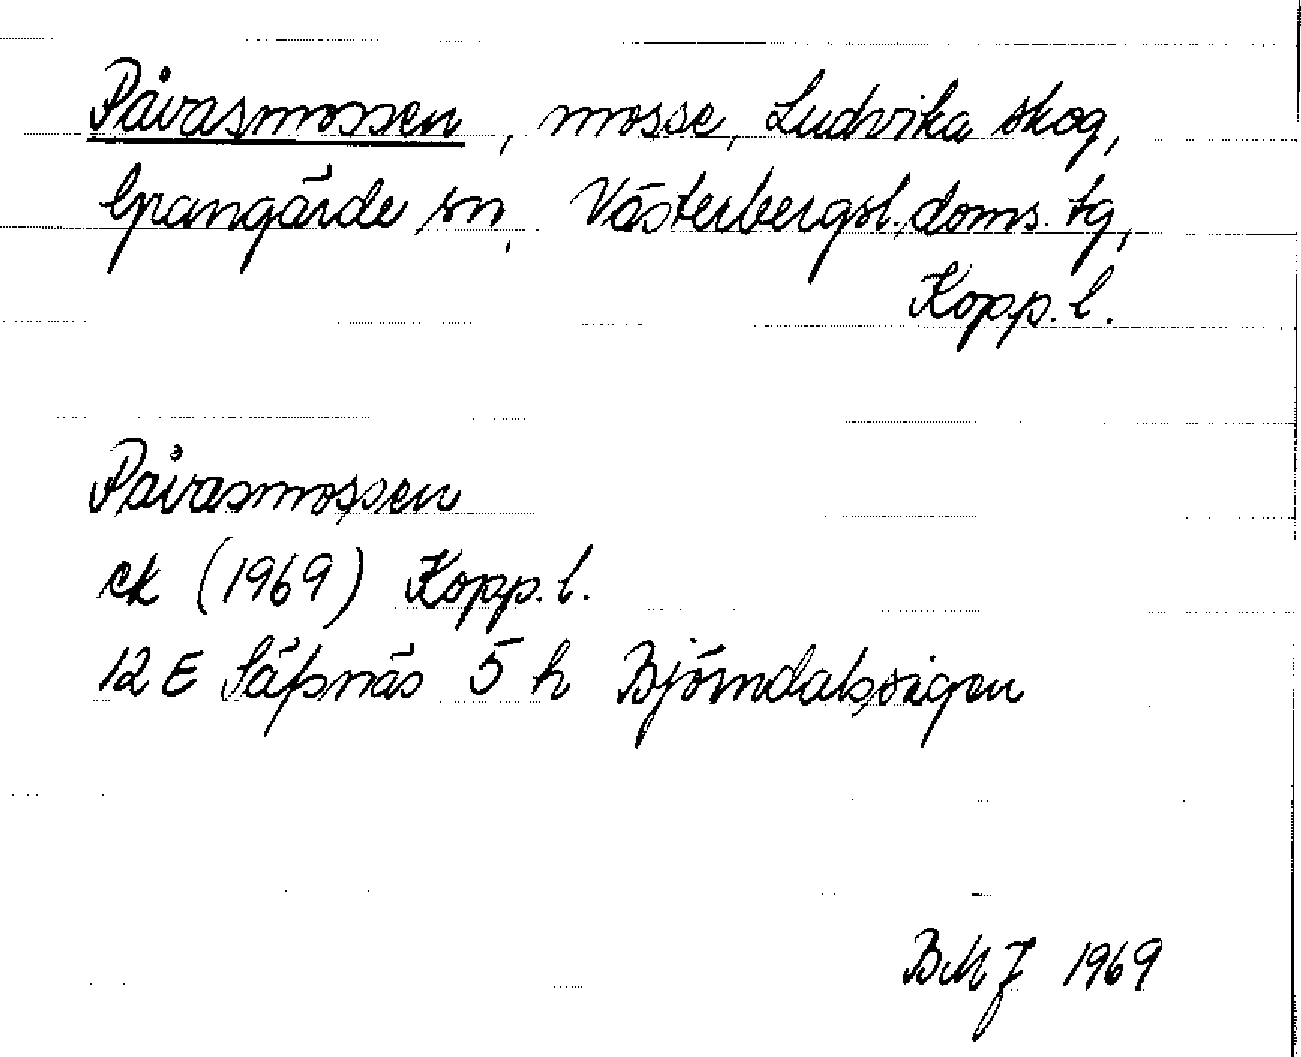 Påvasmossen, mosse, Ludvika skog,
Grangärde sn, Västerbergsl. doms. tg,
Kopp. l.
Påvasmossen
ek (1969) Kopp. l.
12 E Säfsnäs 5 h Björndalssigen
BMJ 1969